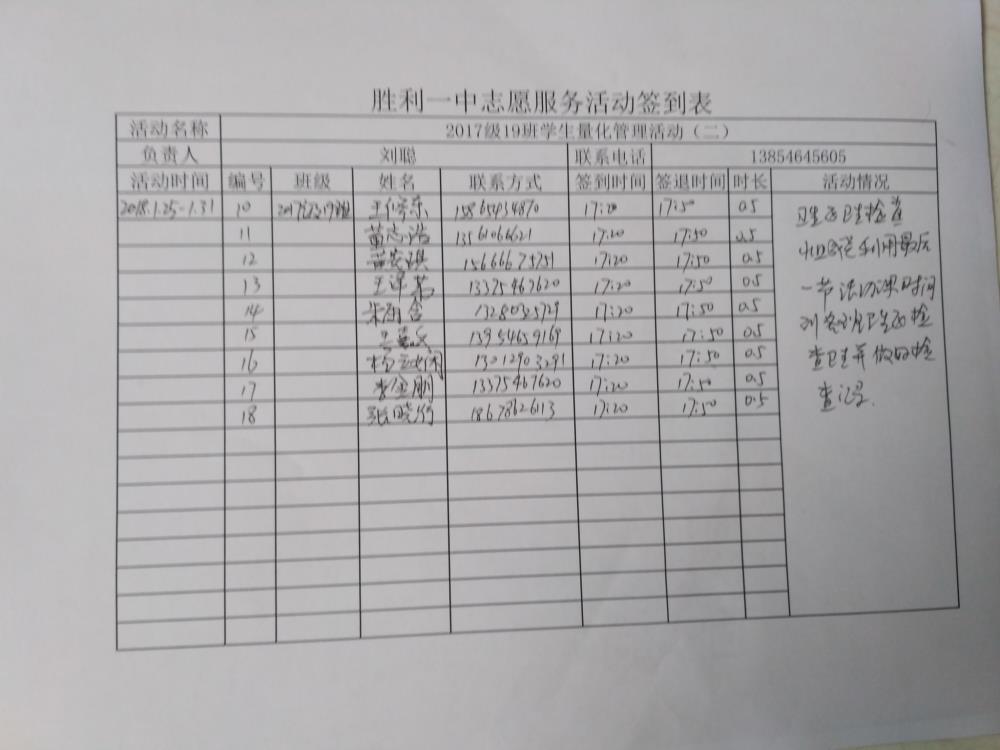 胜利一中志愿服务活动签到表
活动名称 2017级19班学生量化管理活动（二）
负责人 刘聪 联系电话 13854645605
活动时间 编号 班级 姓名 联系方式 签到时间 签退时间 时长 活动情况
2018.1.25-1.31 10 2017级19班 15865954870 17:20 17:50 0.5 卫生区卫生检查
11 黄志浩 13561066621 17:20 17:50 0.5 利用最后
12 17:20 17:50 0.5
13 13375467620 17:20 17:50 0.5 一节活动课时间
14 13280325729 17:20 17:50 0.5
15 13954659169 17:20 17:50 0.5 到各班卫生区检
16 13012903291 17:20 17:50 0.5 查卫生并做好检
17 李金朋 13375467620 17:20 17:50 0.5
18 张晓彤 18678626113 17:20 17:50 0.5 查记录.